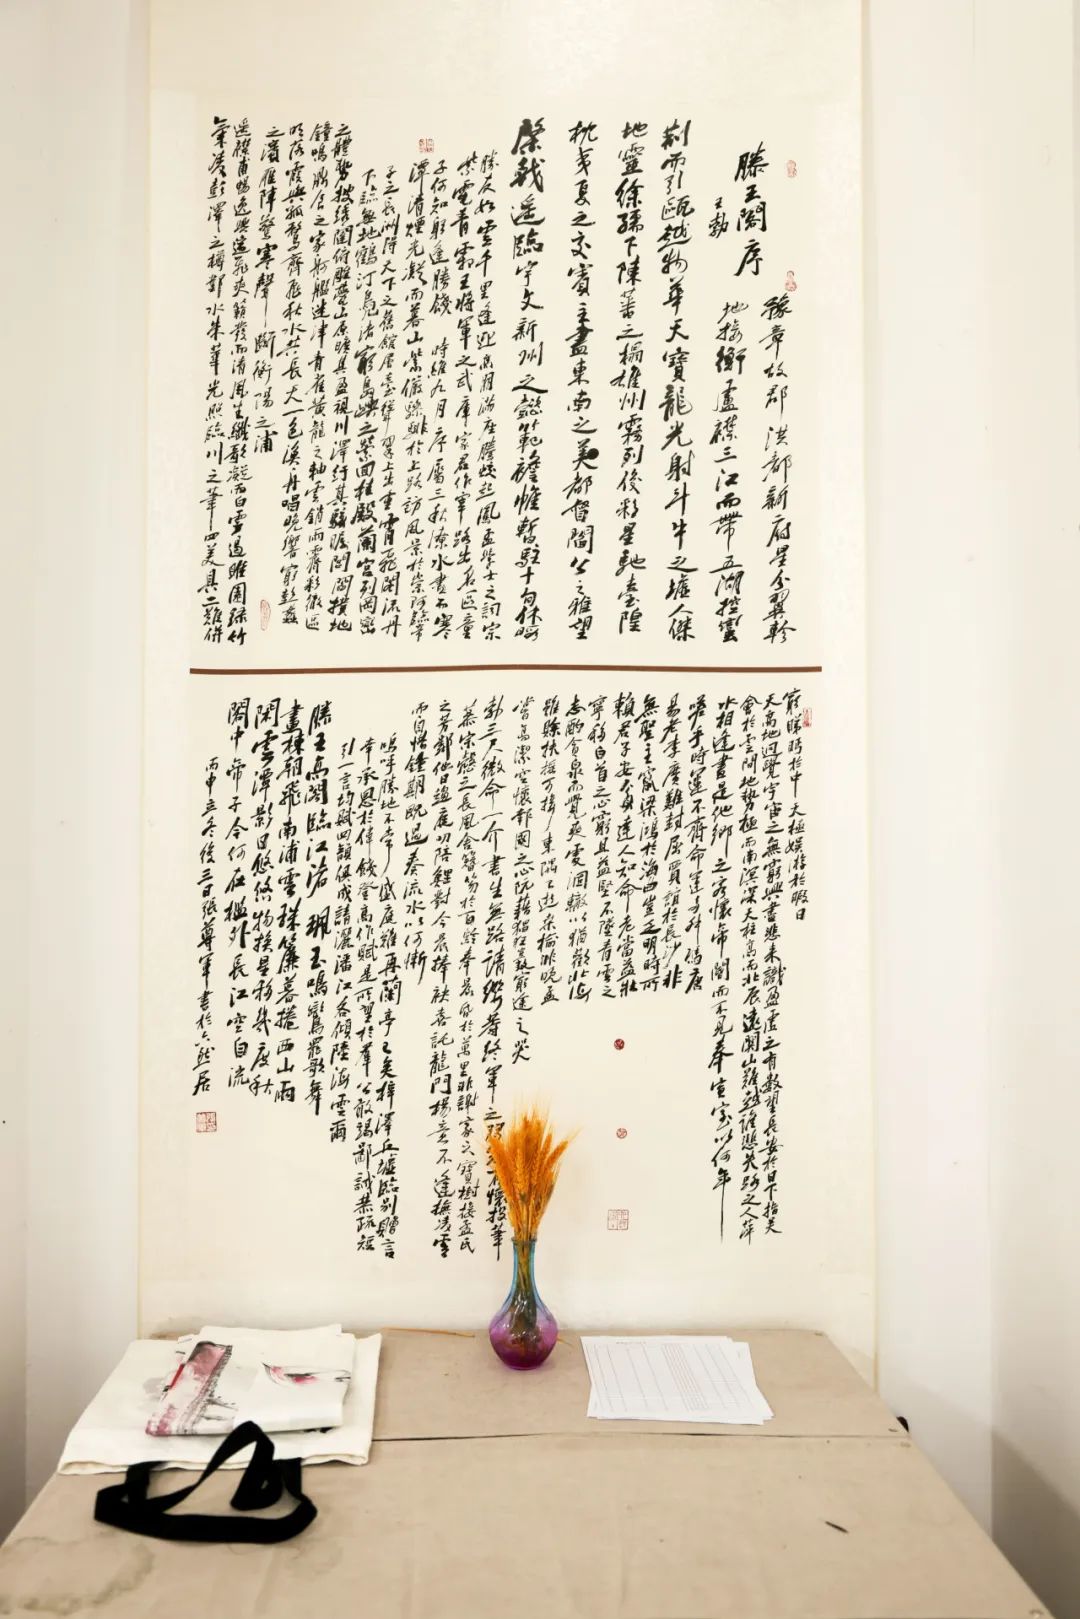 滕王閣序
王勃
豫章故郡洪都新府星分翼軫
地接衡廬襟三江而帶五湖控蠻
荊而引甌越物華天寶龍光射斗牛之墟人傑
地靈徐孺下陳蕃之榻雄州霧列俊彩星馳臺隍
枕夷夏之交賓主盡東南之美都督閻公之雅望
棨戟遙臨宇文新州之懿範襜帷暫駐十旬休暇
勝友如雲千里逢迎高朋滿座騰蛟起鳳孟學士之詞宗
紫電青霜王將軍之武庫家君作宰路出名區童
子何知躬逢勝餞 時維九月序屬三秋潦水盡而寒
潭清煙光凝而暮山紫儼驂騑於上路訪風景於崇阿臨帝
子之長洲得天下之舊館層臺聳翠上出重霄飛閣流丹
下臨無地鶴汀鳧渚窮島嶼之縈回桂殿蘭宮列岡巒
之體勢披繡闥俯雕甍山原曠其盈視川澤紆其駭矚閭閻撲地
鐘鳴鼎食之家舸艦迷津青雀黃龍之軸雲銷雨霽彩徹區
明落霞與孤鶩齊飛秋水共長天一色漁舟唱晚響窮彭蠡
之濱雁陣驚寒聲斷衡陽之浦
遙襟甫暢逸興遄飛爽籟發而清風生纖歌凝而白雲遏睢園綠竹
氣凌彭澤之樽鄴水朱華光照臨川之筆四美具二難併
窮睇眄於中天極娛遊於暇日
天高地迥覺宇宙之無窮興盡悲來識盈虛之有數望長安於日下指吳
會於雲間地勢極而南溟深天柱高而北辰遠關山難越誰悲失路之人萍
水相逢盡是他鄉之客懷帝閽而不見奉宣室以何年
嗟乎時運不齊命運多舛馮唐
易老李廣難封屈賈誼於長沙非
無聖主竄梁鴻於海曲豈乏明時所
賴君子安貧達人知命老當益壯
寧移白首之心窮且益堅不墜青雲之
志酌貪泉而覺爽處涸轍以猶歡北海
雖賒扶搖可接東隅已逝桑榆非晚孟
嘗高潔空懷報國之心阮籍猖狂豈效窮途之哭
勃三尺微命一介書生無路請纓等終軍之 有懷投筆
慕宗愨之長風舍簪笏於百齡奉晨昏於萬里非謝家之寶樹接孟氏
之芳鄰他日趨庭叨陪鯉對今晨捧袂喜託龍門楊意不逢撫凌雲
而自惜鍾期既遇奏流水以何慚
嗚呼勝地不常盛筵難再蘭亭已矣梓澤丘墟臨別贈言
幸承恩於偉餞登高作賦是所望於群公敢竭鄙誠恭疏短
引一言均賦四韻俱成請灑潘江各傾陸海雲爾
滕王高閣臨江渚珮玉鳴鸞罷歌舞
畫棟朝飛南浦雲珠簾暮捲西山雨
閑雲潭影日悠悠物換星移幾度秋
閣中帝子今何在檻外長江空自流
丙申立冬後三日張尊軍書於六然居